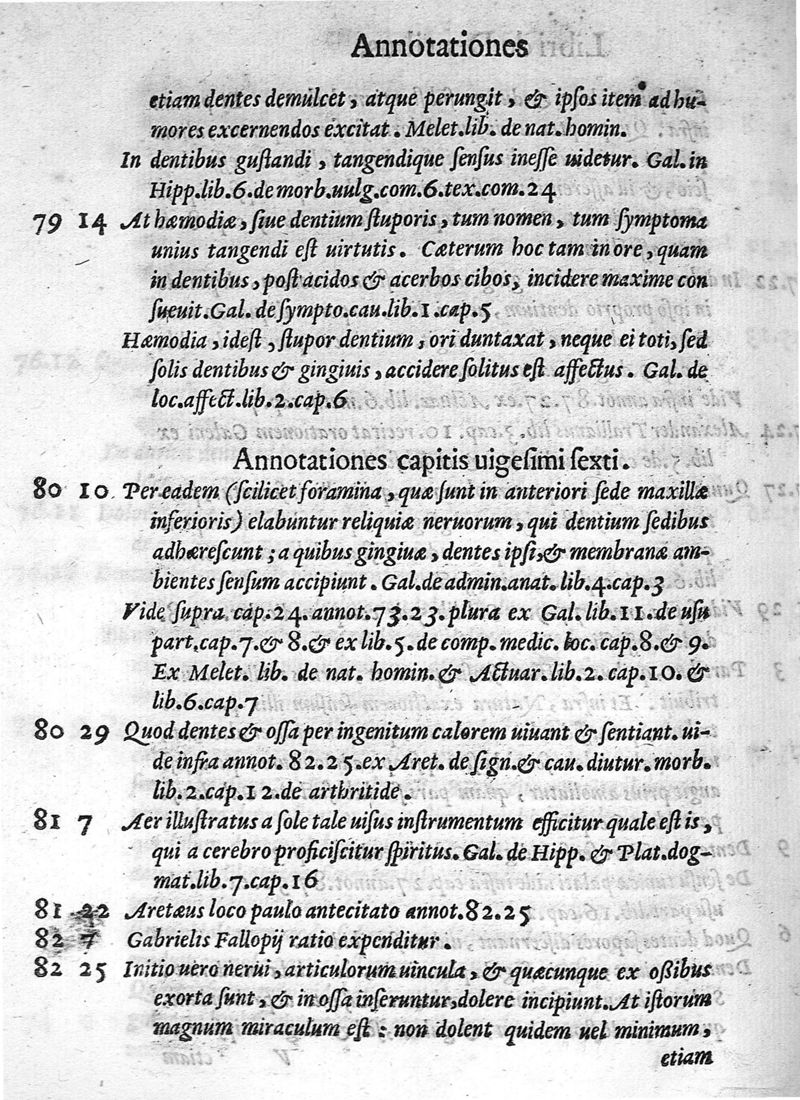 Annotationes
etiam dentes demulcet, atque perungit, & ipſos item ad hu-
mores excernendos excitat. Melet.lib. de nat. homin.
In dentibus guſtandi, tangendique ſenſus ineſſe uidetur. Gal. in
Hipp.lib.6.de morb.uulg.com.6.tex.com.24
79 14 At hæmodiæ, ſiue dentium ſtuporis, tum nomen, tum ſymptoma
unius tangendi eſt uirtutis. Cæterum hoc tam in ore, quam
in dentibus, poſt acidos & acerbos cibos, incidere maxime con
ſueuit.Gal. de ſympto.cau.lib.1.cap.5
Hæmodia, ideſt, ſtupor dentium, ori duntaxat, neque ei toti, ſed
ſolis dentibus & gingiuis, accidere ſolitus eſt affectus. Gal. de
loc.affect.lib.2.cap.6
Annotationes capitis uigeſimi ſexti.
80 10 Per eadem (ſcilicet foramina, quæ ſunt in anteriori ſede maxillæ
inferioris) elabuntur reliquiæ neruorum, qui dentium ſedibus
adhæreſcunt; a quibus gingiuæ, dentes ipſi, & membranæ am-
bientes ſenſum accipiunt. Gal.de admin.anat. lib.4.cap.3
Vide ſupra cap.24. annot.73.23.plura ex Gal. lib.11.de uſu
part.cap.7.& 8.& ex lib.5. de comp. medic. loc. cap.8.& 9.
Ex Melet. lib. de nat. homin.& Actuar. lib.2. cap.10. &
lib.6.cap.7
80 29 Quod dentes & oſſa per ingenitum calorem uiuant & ſentiant. ui-
de infra annot. 82.25.ex Aret. de ſign.& cau. diutur. morb.
lib.2.cap.12.de arthritide.
81 7 Aer illuſtratus a ſole tale uiſus inſtrumentum efficitur quale eſt is,
qui a cerebro proficiſcitur ſpiritus. Gal. de Hipp. & Plat.dog-
mat.lib.7.cap.16
81 22 Aretæus loco paulo antecitato annot.82.25
82 7 Gabrielis Fallopij ratio expenditur.
82 25 Initio uero nerui, articulorum uincula, & quæcunque ex oßibus
exorta ſunt, & in oſſa inſeruntur, dolere incipiunt. At iſtorum
magnum miraculum eſt: non dolent quidem uel minimum,
etiam